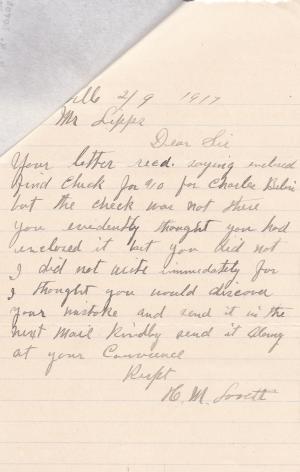 2/9 1917
Mr Lipps
Dear Sir
Your letter recd. saying enclosed
find Check for $10 for Charles
but the check was not there
you evidently thought you had
enclosed it but you did not
I did not write immediately for
I thought you would discover
your mistake and send it in the
next Mail Kindly send it along
at your Convience
Respt
H. M.